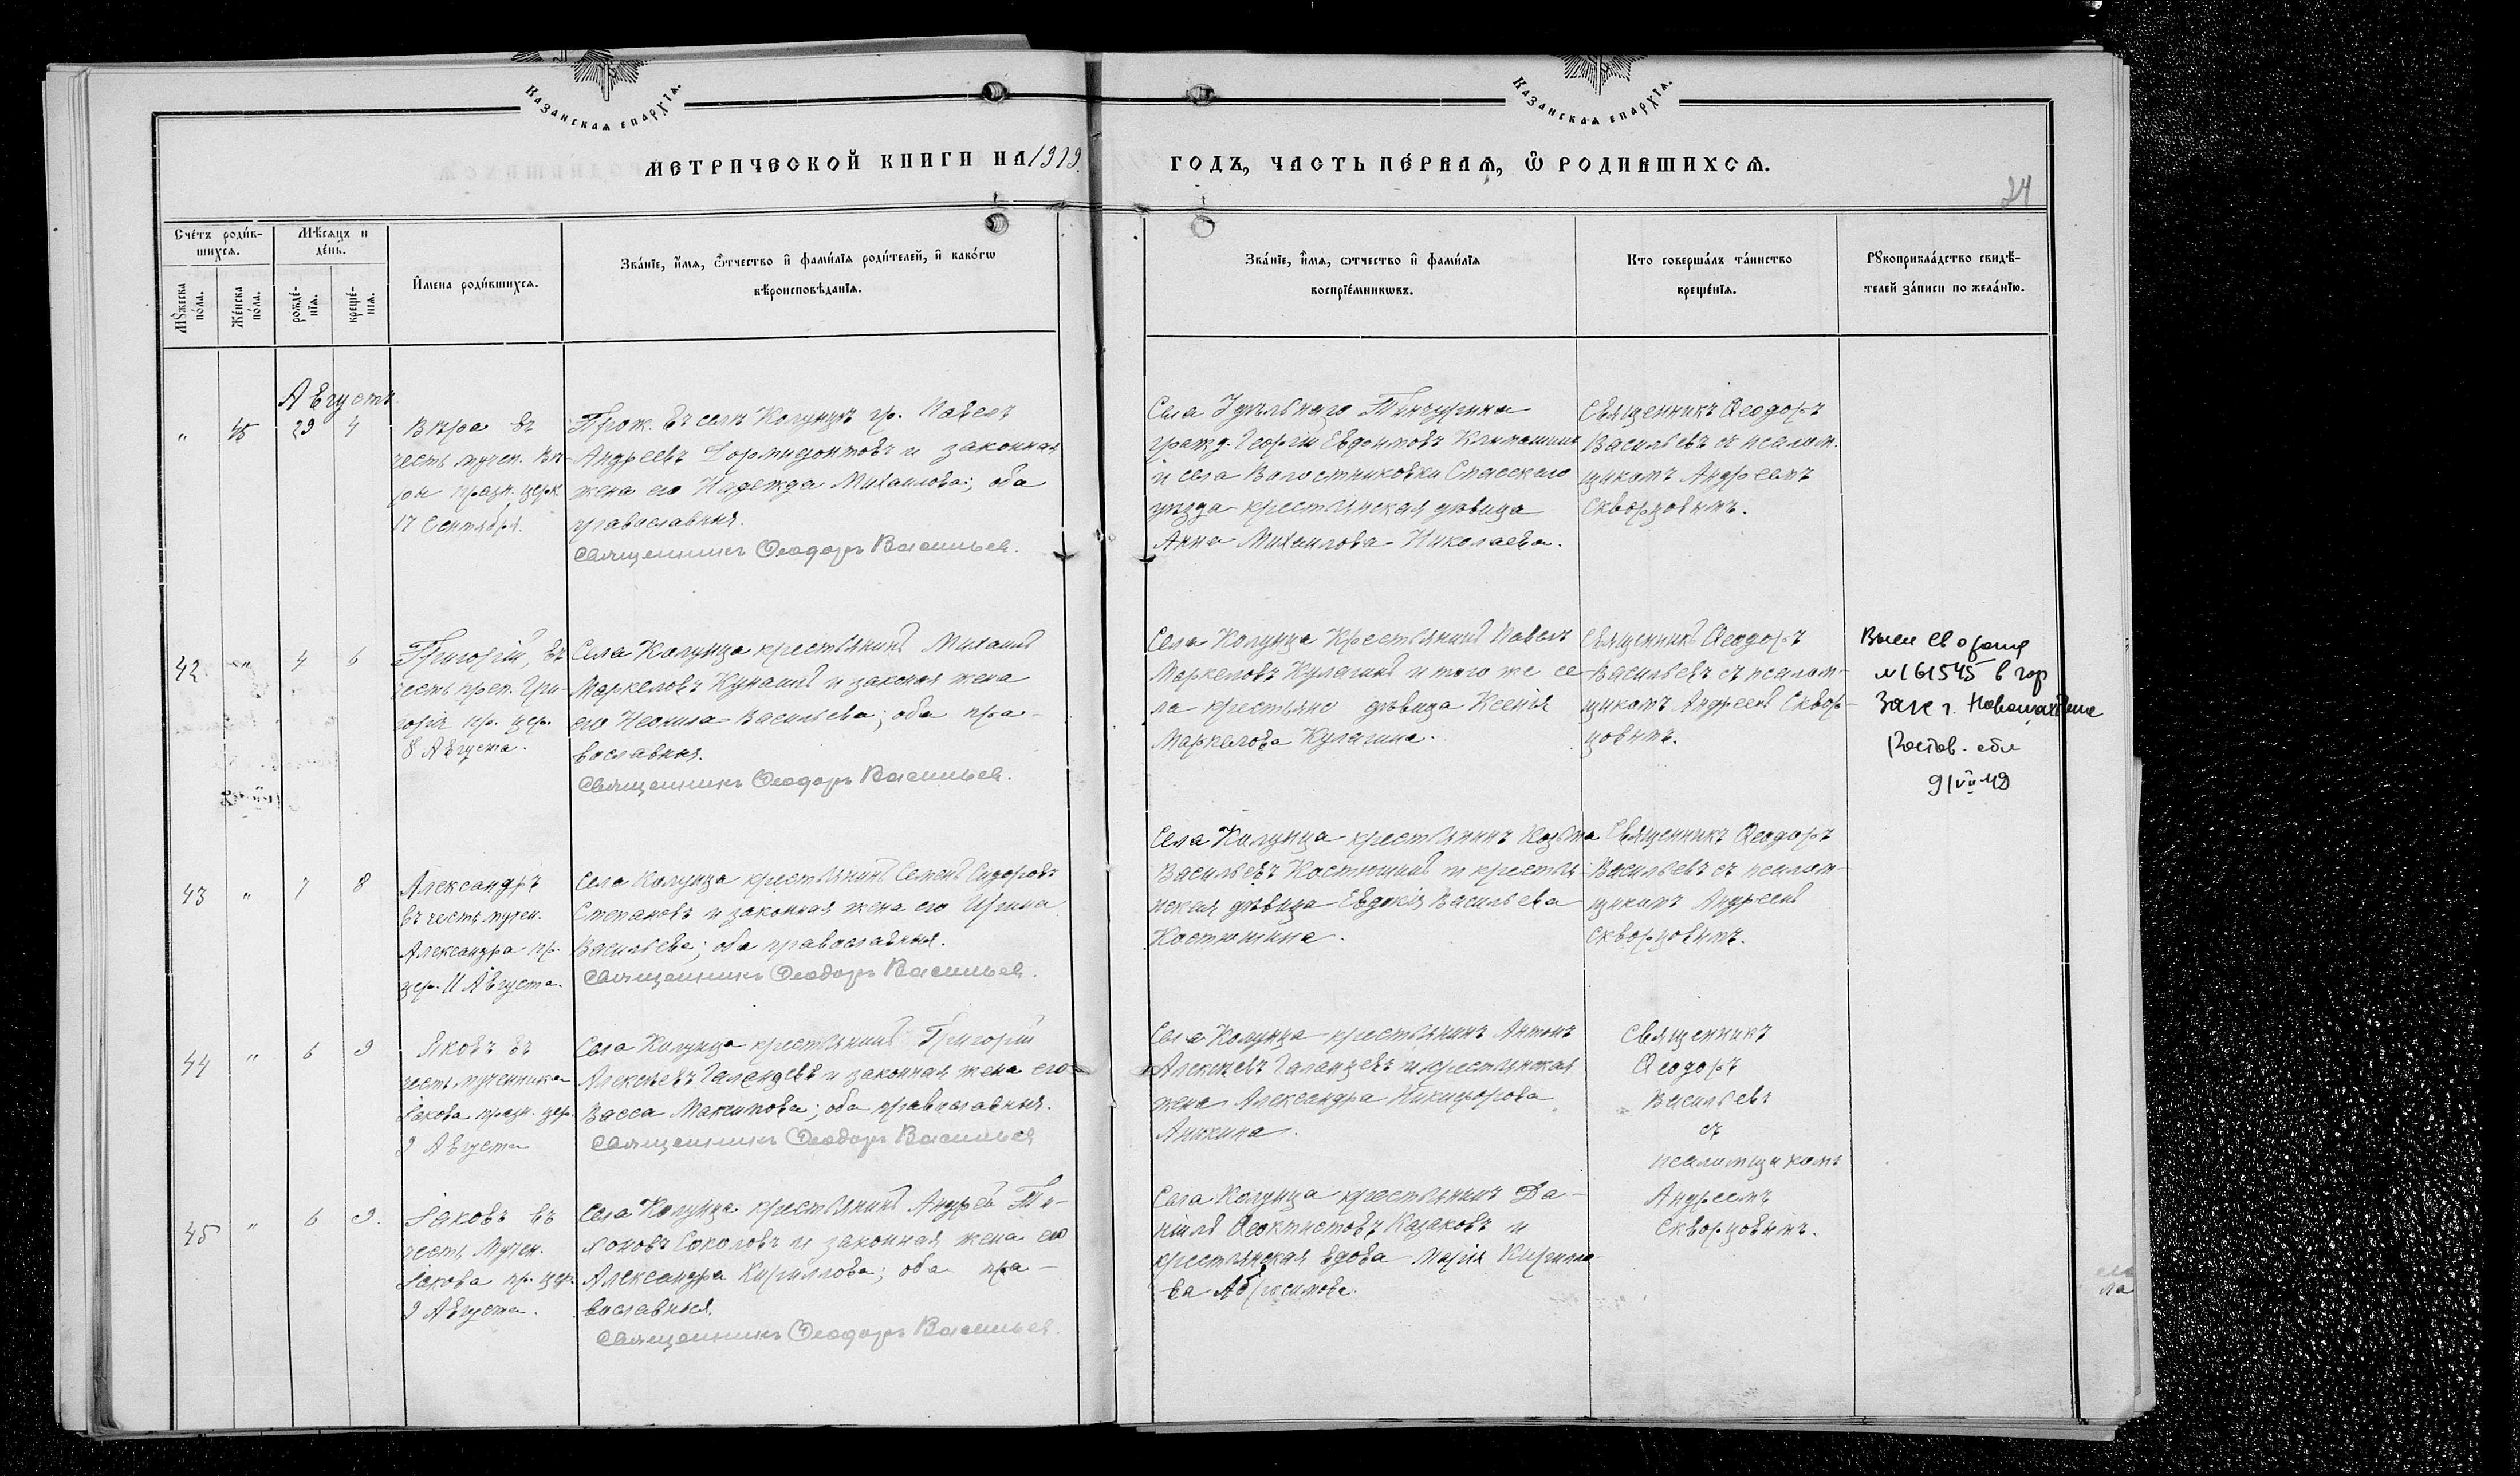 Казанская епархїя.
Казанская епархїя.
МЕТРИЧЕСКОЙ КНИГИ НА 1919.
ГОДЪ, ЧАСТЬ ПЕ́РВАѦ, Ѿ РОДИВШИХСѦ.
24
Сче́тъ роди́в-
шихсѧ.
Мѣ́сяцъ и
де́нь.
Мꙋ́жеска по́ла.
Же́нска по́ла.
рожде́-
нїѧ.
креще́-
нїѧ.
И́мена роди́вшихсѧ.
Зва́нїе, и́мя, ѻ́тчество и҆ фами́лїя роди́телей, и҆ како́гѡ
вѣроисповѣ́данїѧ.
Зва́нїе, и́мя, ѻтчество и҆ фами́лїя
воспрїе́мникѡвъ.
Кто соверша́лъ та́инство
креще́нїѧ.
Рꙋкоприкла́дство свидѣ́-
телей за́писи по жела́нїю.
Августъ.
" 45 29 4
Вѣра въ
честь мучен. Вѣ-
ры празн. церк.
17 Сентября.
Прож. въ селѣ Колунцѣ гр. Павелъ
Андреевъ Дормидонтовъ и законная
жена его Надежда Михаилова; оба
православныя.
Священникъ Ѳеодоръ Васильев.
Села Удѣльнаго Тинчурина
гражд. Георгій Евдокимовъ
и села Спасскаго
уѣзда крестьянская дѣвица
Анна Михаилова Николаева.
Священникъ Ѳеодоръ
Васильевъ съ псалом-
щикомъ Андреемъ
Скворцовымъ.
42 " 4 6
Григорій, въ
честь преп. Гри-
горія пр. цер.
8 Августа.
Села Колунца крестьянинъ Михаилъ
Маркеловъ и законная жена
его Неонила Васильева; оба пра-
вославныя.
Священникъ Ѳеодоръ Васильев.
Села Колунца крестьянинъ Павелъ
Маркеловъ Кулагинъ и того же се-
ла крестьянс дѣвица Ксенія
Маркелова Кулагина.
Священникъ Ѳеодоръ
Васильевъ съ псалом-
щикомъ Андреемъ Сквор-
цовымъ.
№ 161545 в гор
Загс г.
Ростов. обл
9/VII 49
43 " 7 8
Александръ
въ честь мучен.
Александра пр.
цер. 11 Августа.
Села Колунца крестьянинъ Семенъ Сидоровъ
Степановъ и законная жена его Ирина
Васильева; оба православныя.
Священникъ Ѳеодоръ Васильев.
Села Колунца крестьянинъ Козьма
Васильевъ Костюнинъ и крестья-
нская дѣвица Евдокія Васильева
Костюнина.
Священникъ Ѳеодоръ
Васильевъ съ псалом-
щикомъ Андреемъ
Скворцовымъ.
44 " 6 9
Яковъ въ
честь мученика
Іакова празн. цер.
9 Августа
Села Колунца крестьянинъ Григорій
Алексѣевъ Галанцевъ и законная жена его
Васса Максимова; оба православныя.
Священникъ Ѳеодоръ Васильев
Села Колунца крестьянинъ Антонъ
Алексѣевъ Галанцевъ и крестьянская
жена Александра Никифорова
Аникина.
Священникъ
Ѳеодоръ
Васильевъ
съ
псаломщикомъ
Андреемъ
Скворцовымъ.
45 " 6 9.
Іаковъ въ
честь Мучен.
Іакова пр. цер.
9 Августа.
Села Колунца крестьянинъ Андрей Ти-
хоновъ Соколовъ и законная жена его
Александра Кириллова; оба пра-
вославныя.
Священникъ Ѳеодоръ Васильев.
Села Колунца крестьянинъ Да-
ніилъ Ѳеоктистовъ Казаковъ и
крестьянская вдова Марія Кирилло-
ва Абросимова.